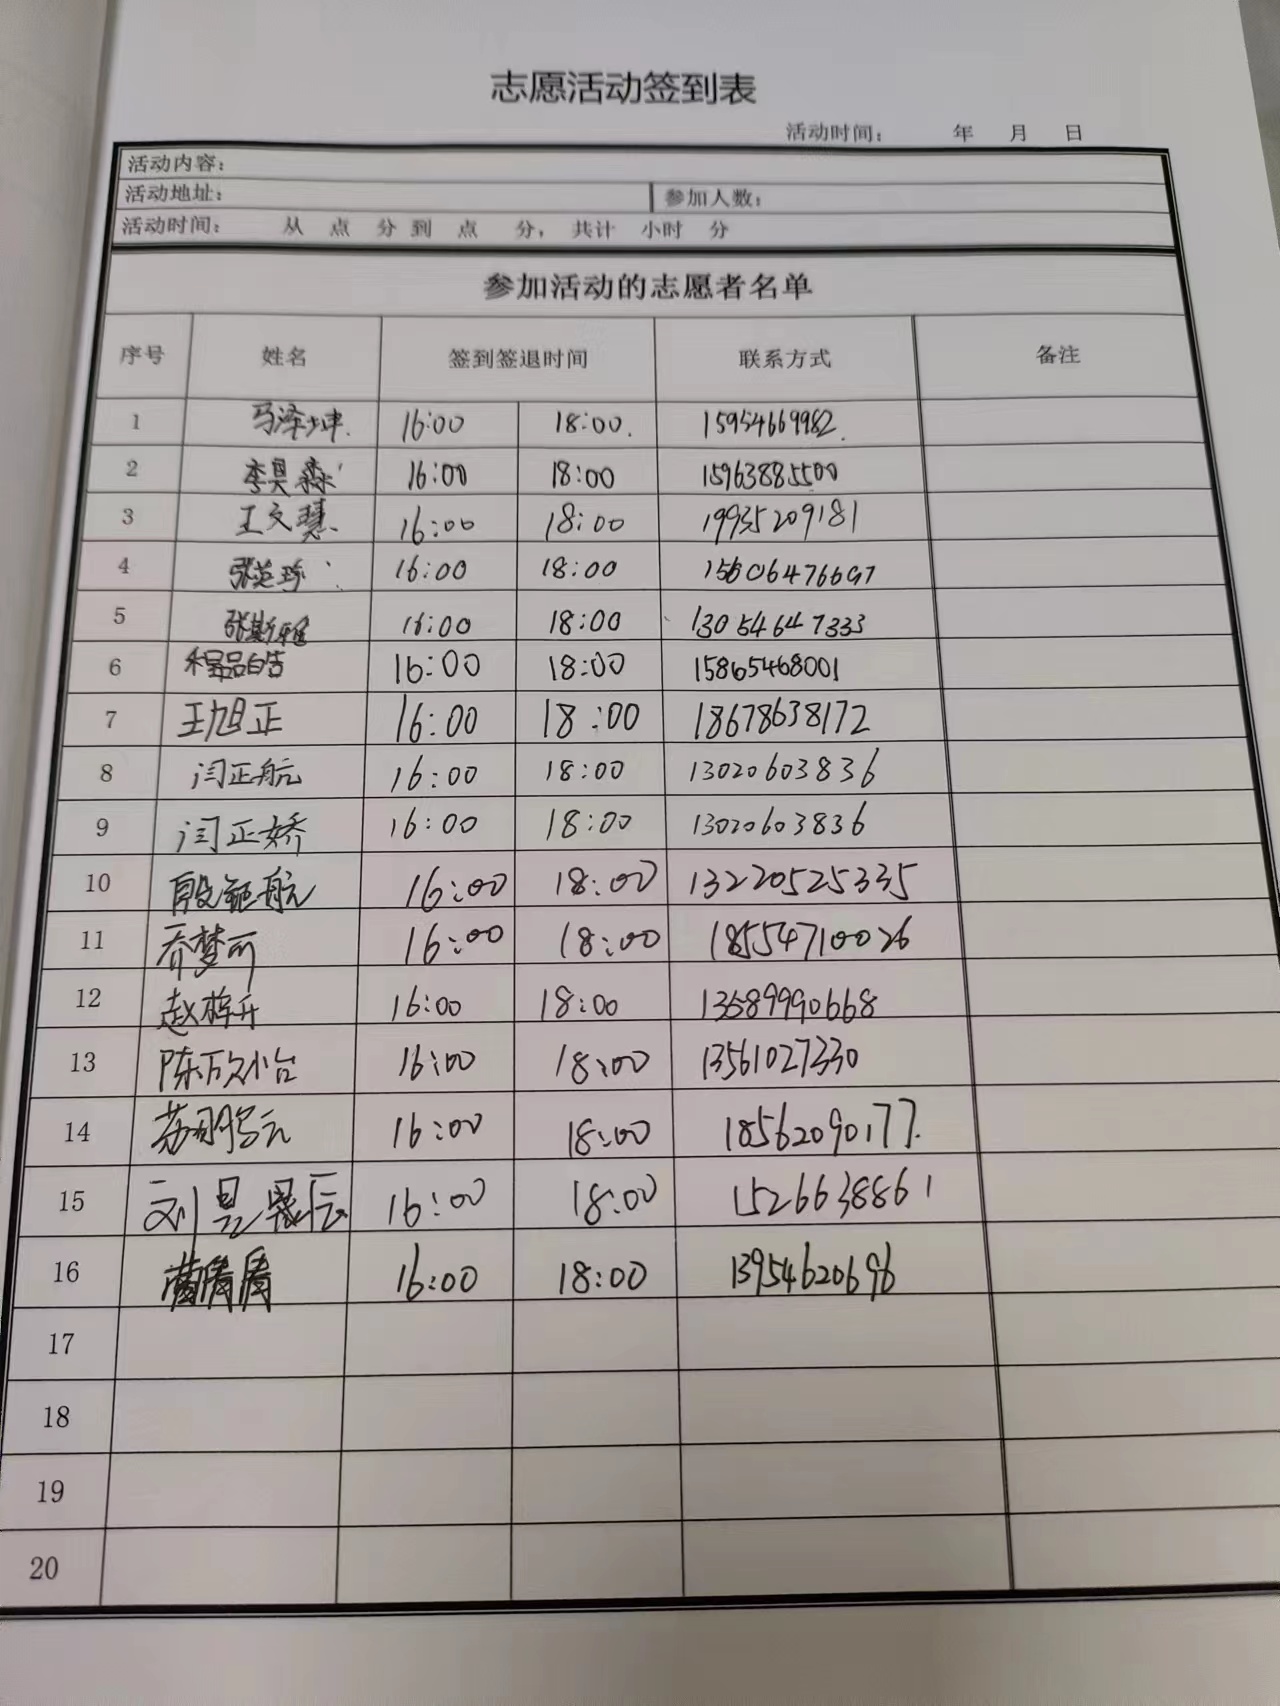 志愿活动签到表
活动时间： 年 月 日
活动内容：
活动地址： 参加人数：
活动时间： 从 点 分到 点 分，共计 小时 分
参加活动的志愿者名单
序号 姓名 签到签退时间 联系方式 备注
1 马泽坤 16:00 18:00 15954669982
2 李昊霖 16:00 18:00 15963885500
3 王文慧 16:00 18:00 19935209181
4 张英珍 16:00 18:00 15606476697
5 张斯雅 16:00 18:00 13054647333
6 程品皓 16:00 18:00 15865468001
7 王旭正 16:00 18:00 18678638172
8 闫正航 16:00 18:00 13020603836
9 闫正娇 16:00 18:00 13020603836
10 殷钜航 16:00 18:00 13220525335
11 乔梦可 16:00 18:00 18554710026
12 赵梓升 16:00 18:00 13589990668
13 陈放怡 16:00 18:00 13561027330
14 苏羽鸿元 16:00 18:00 18562090177
15 刘昱晟辰 16:00 18:00 1526638861
16 16:00 18:00 13954620696
17
18
19
20